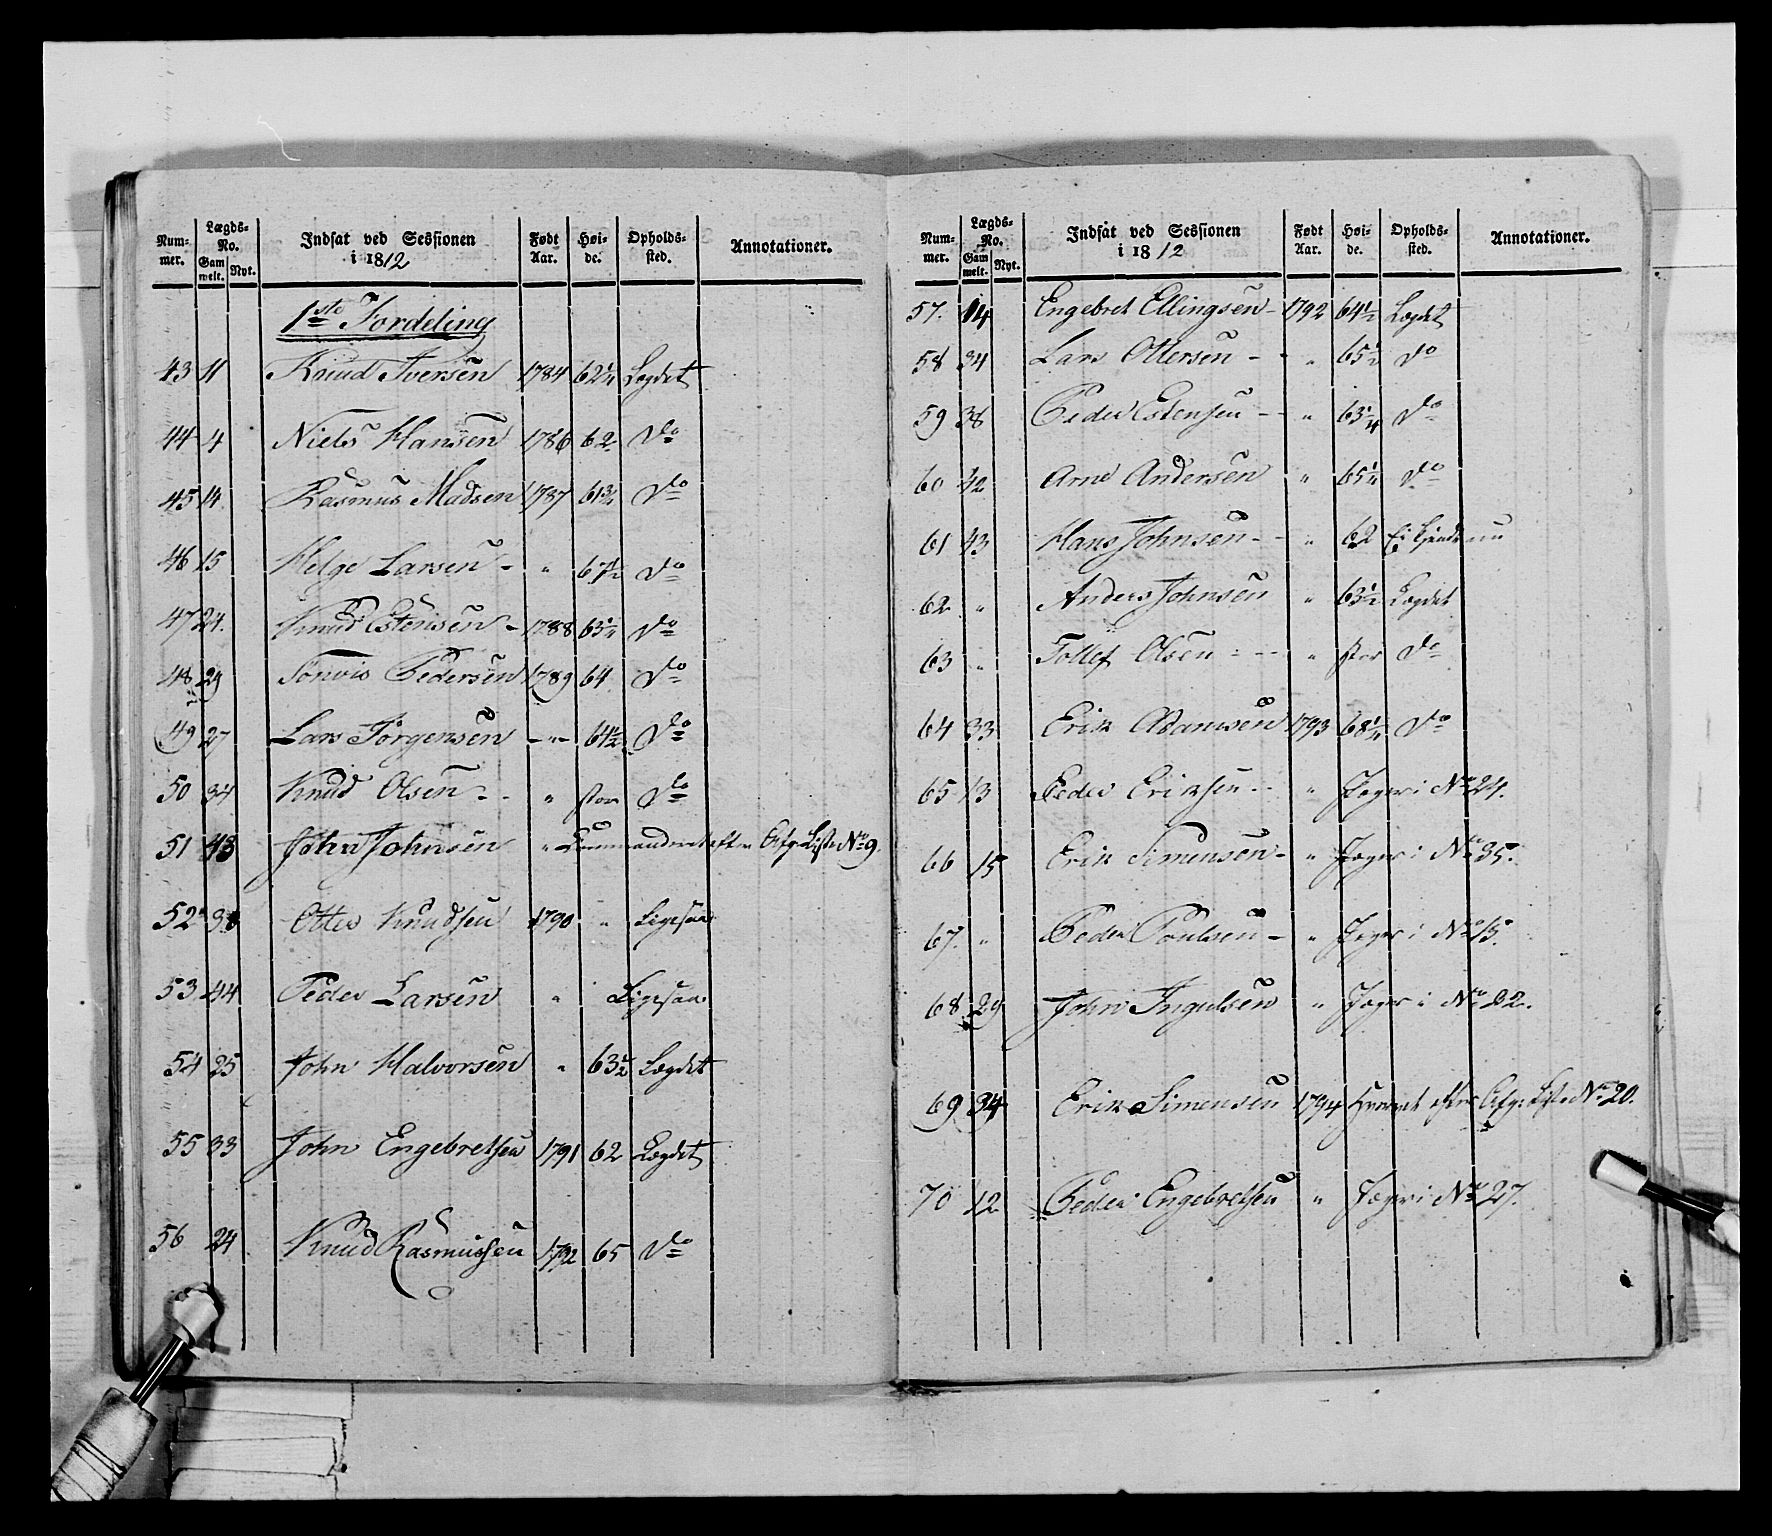 Num-
mer.
Lægds-
No.
Gam
melt.
Nyt.
Indsat ved Sessionen
i 1812
Født
Aar.
Høi-
de.
Opholds-
sted.
Annotationer.
1ste Fordeling
43 11 Knud Iversen 1784 62 1/4 Lægdet
44 4 Niels Hansen 1786 62 do
45 14 Rasmus Madsen 1787 61 3/4 do
46 15 Helge Larsen - " 67 1/2 do
47 24. Knud Estensen - 1788 63 1/4 do
48 29 Tonvis Pedersen 1789 64 do
49 27 Lars Jörgensen -"- 64 1/2 do
50 34 Knud Olsen - - " stor do
51 43 John Johnsen " Commanderet efter Afg: Liste No 9.
52 38 Otter Knudsen 1790 " Ligesaa
53 44 Peder Larsen " Ligesaa
54 25 John Halvorsen " 63 1/2 Lægdet
55 33 John Engebretsen 1791 62 Lægdet
56 24 Knud Rasmussen 1792 65 do
Num-
mer.
Lægds-
No.
Gam
melt.
Nyt.
Indsat ved Sessionen
i 1812
Født
Aar.
Høi-
de.
Opholds-
sted.
Annotationer.
57. 14 Engebret Ellingsen - 1792 64 1/2 Lægdet
58 34 Lars Ottersen - - " 65 1/2 do
59 38 Peder Estensen - - " 63 1/4 do
60 42 Arne Andersen " 65 1/4 do
61 43 Hans Johnsen - - " 62 Ei
62 " Anders Johnsen " 63 1/2 Lægdet
63 " Tollef Olsen - - - " stor do
64 33 Erik Adamsen 1793 68 1/4 do
65 13 Peder Eriksen - - " Jæger i No 24.
66 15 Erik Simensen - " Jæger i No 35.
67. " Peder Poulsen - " Jæger i No 15.
68 29 John Ingulsen " Jæger i No 32.
69 34 Erik Simensen 1794 Hvervet efter Afg: Liste No 20.
70 12 Peder Engebretsen " Jæger i No 27.